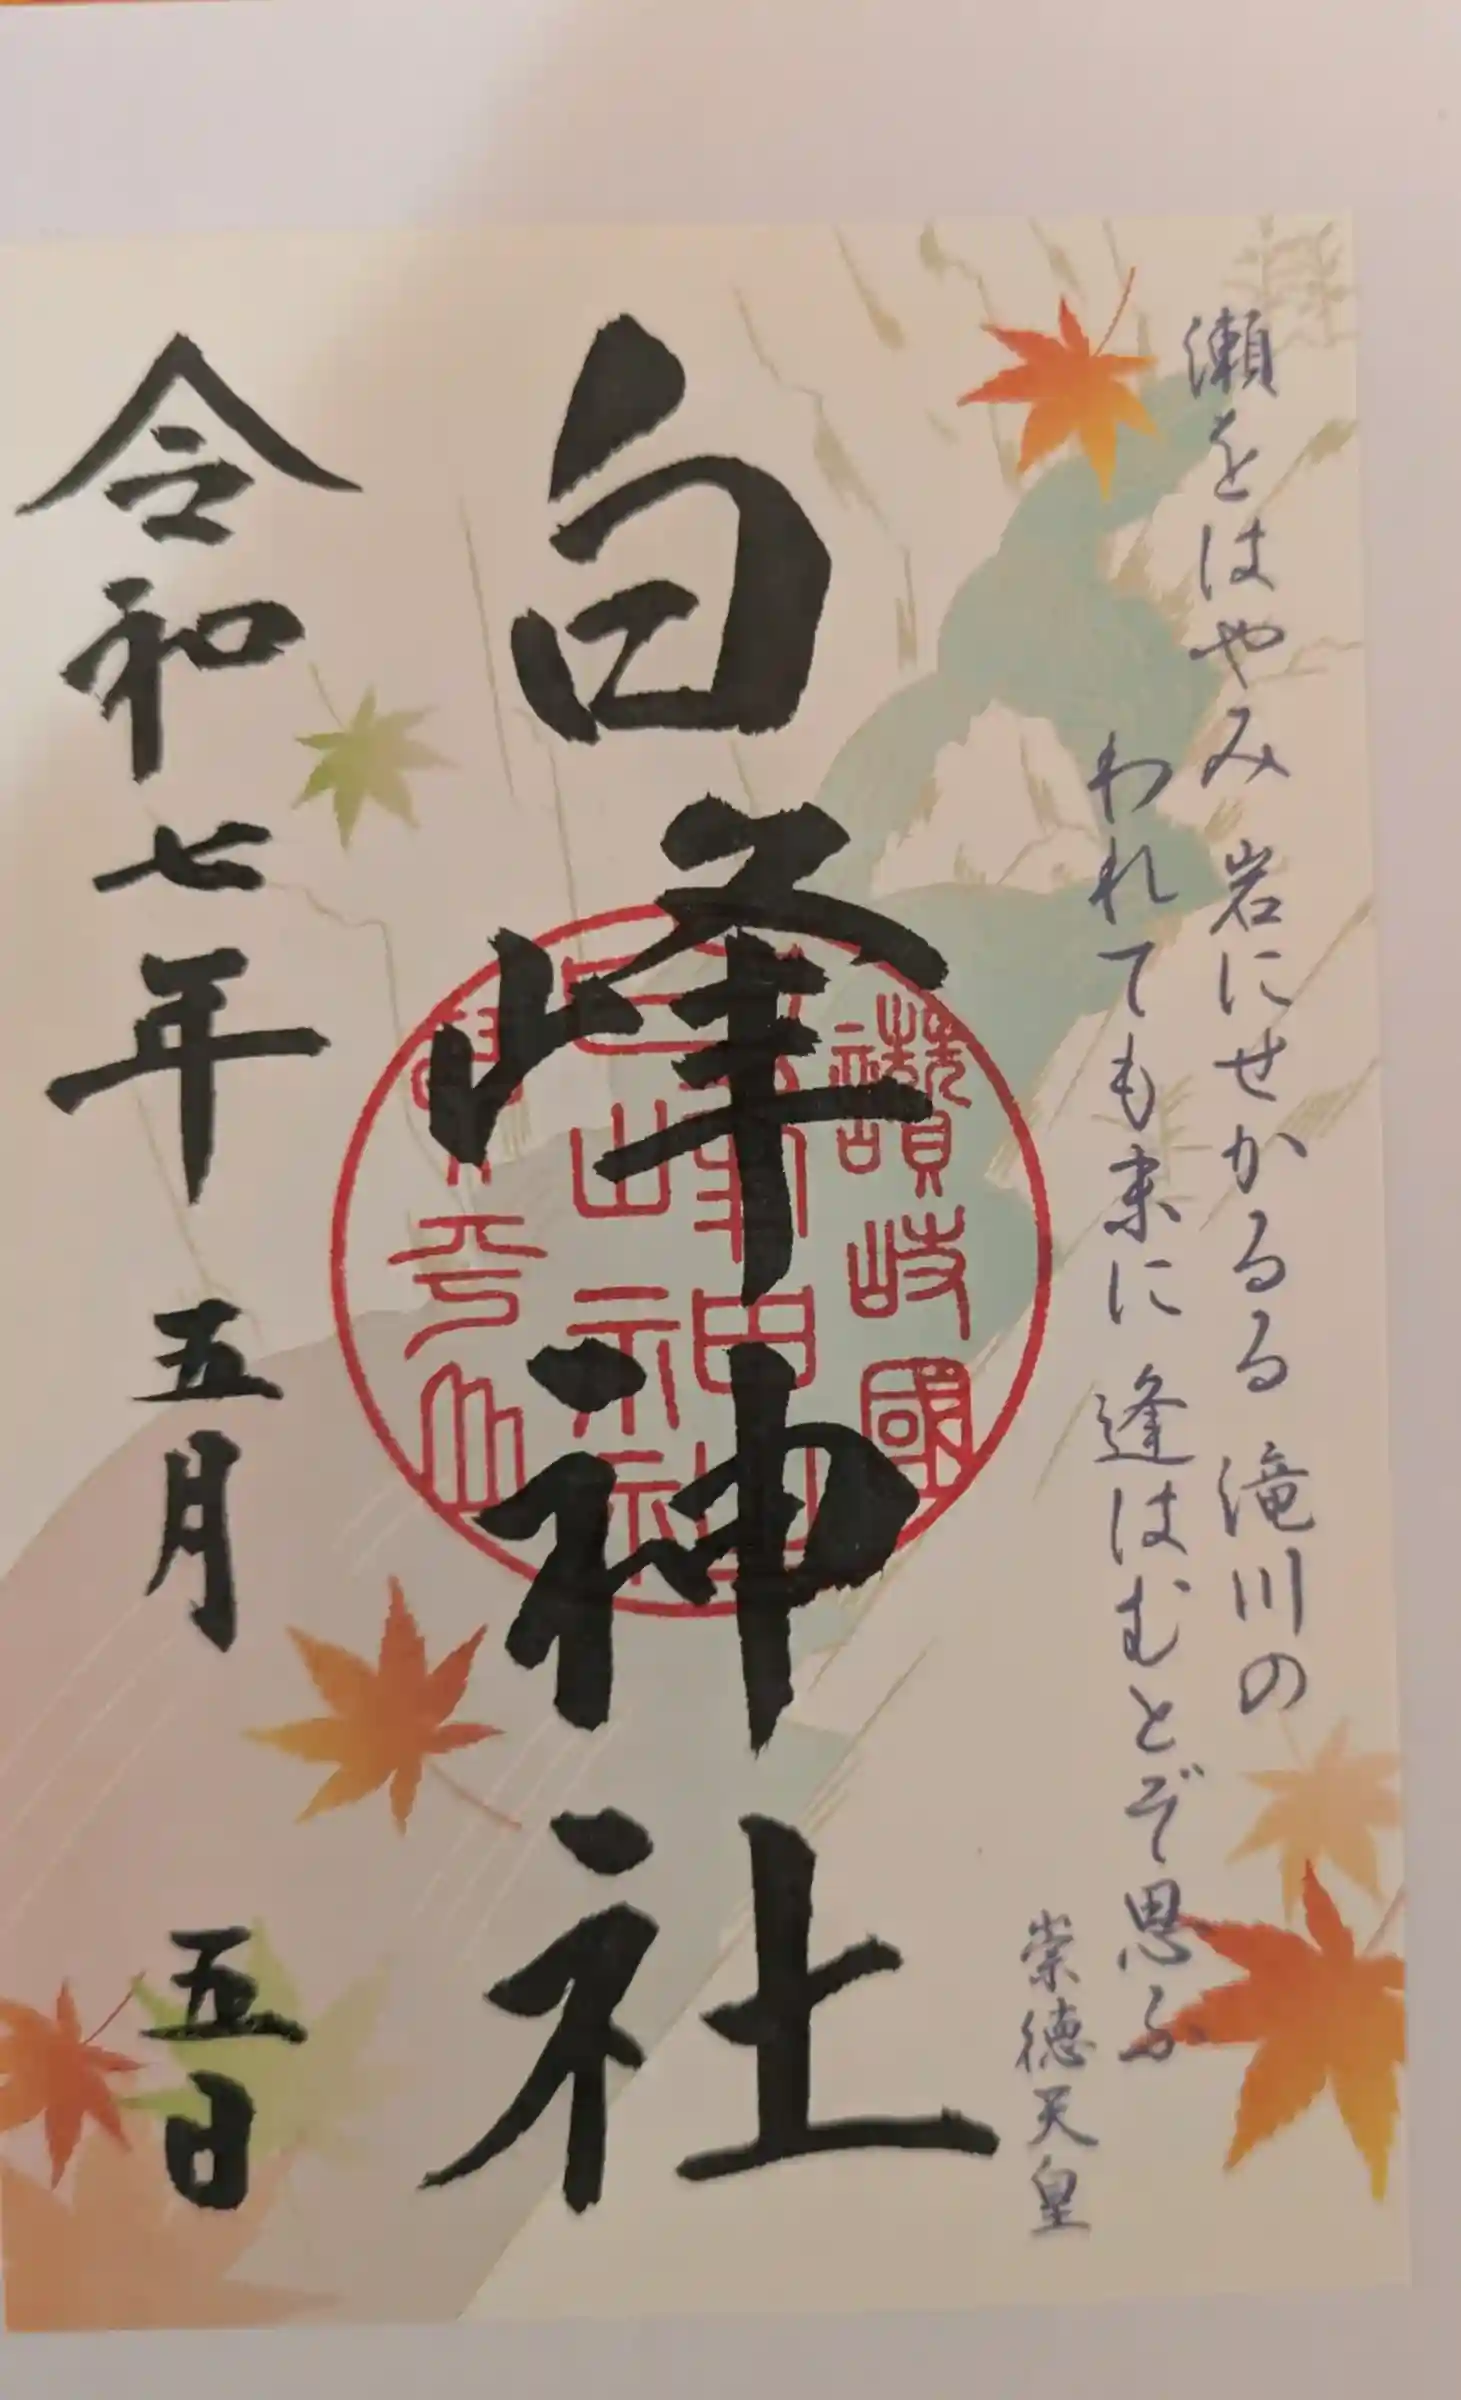 瀬をはやみ 岩にせかるる 滝川の
われても末に 逢はむとぞ思ふ
崇徳天皇
白峰神社
讃岐國
白峯神社
平山
令和七年 五月 五日